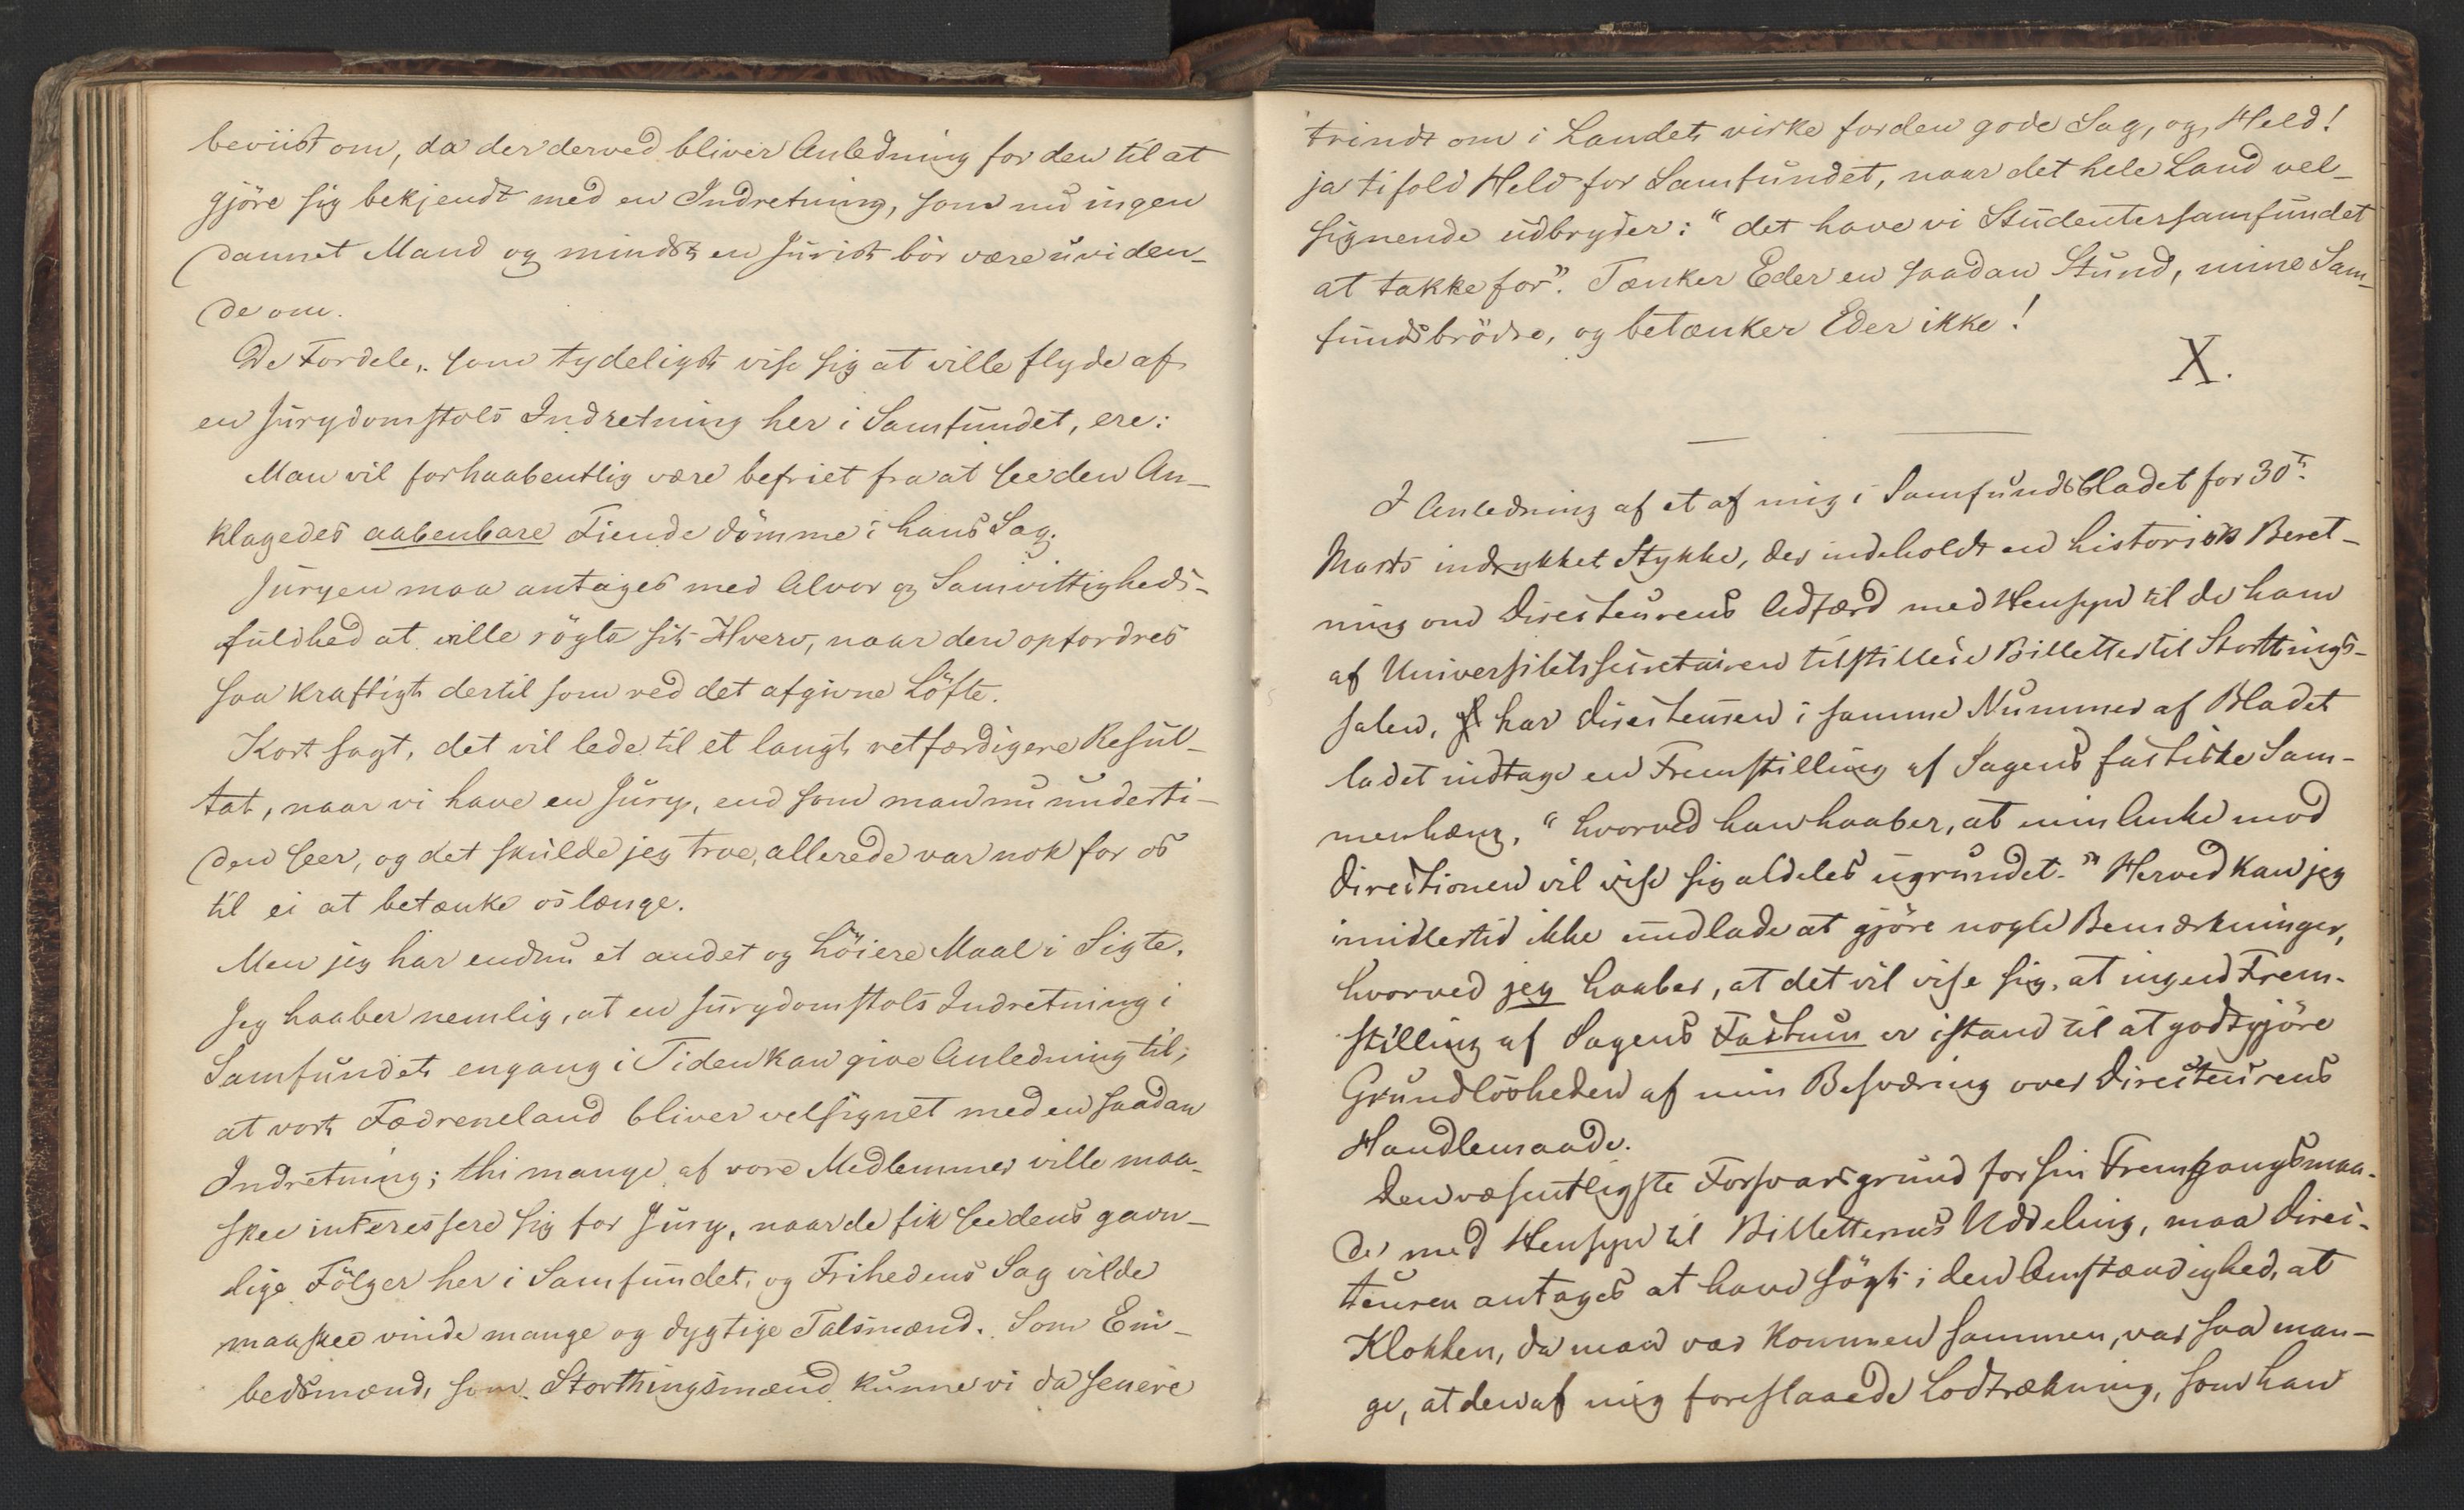 beviist om, da der derved bliver Anledning for den til at
gjöre sig bekjendt med en Indretning, som nu ingen
dannet Mand og mindst en Jurist bör være uviden-
de om.
De Fordele, som tydeligst vise sig at ville flyde af
en Jurydomstols Indretning her i Samfundet, ere:
Man vil forhaabentlig være befriet fra at see den An-
klagedes aabenbare Fiende dömme i hans Sag.
Juryen maa antages med Alvor og Samvittigheds-
fuldhed at ville rögte sit Hverv, naar den opfordres
saa kraftigt dertil som ved det afgivne Löfte.
Kort sagt, det vil lede til et langt retfærdigere Resul-
tat, naar vi have en Jury, end som man nu underti-
den seer, og det skulde jeg troe, allerede var nok for os
til ei at betænke os længe.
Men jeg har endnu et andet og höiere Maal i Sigte.
Jeg haaber nemlig, at en Jurydomstols Indretning i
Samfundet engang i Tiden kan give Anledning til,
at vort Fædreneland bliver velsignet med en saadan
Indretning; thi mange af vore Medlemmer ville maa-
skee interessere sig for Jury, naar de fik see dens gavn-
lige Fölger her i Samfundet, og Frihedens Sag vilde
maaskee vinde mange og dygtige Talsmænd. Som Em-
bedsmænd, som Storthingsmænd kunne vi da senere
trindt om i Landet virke for den gode Sag, og Held!
ja tifold Held for Samfundet, naar det hele Land vel-
signende udbryder: "det have vi Studentersamfundet
at takke for". Tænker Eder en saadan Stund, mine Sam-
fundsbrödre, og betænker Eder ikke!
X.
I Anledning af et af mig i Samfundsbladet for 30te
Marts indrykket Stykke, der indeholdt en historisk Beret-
ning om Directeurens Adfærd med Hensyn til de ham
af Universitetssecretairen tilstillede Billetter til Storthings-
salen, har Directeuren i samme Nummer af Bladet
ladet indtage en Fremstilling af Sagens factiske Sam-
menhæng, "hvorved han haaber, at min Anke mod
Directionen vil vise sig aldeles ugrundet." Herved kan jeg
imidlertid ikke undlade at gjöre nogle Bemærkninger,
hvorved jeg haaber, at det vil vise sig, at ingen Frem-
stilling af Sagens Factum er istand til at godtgjöre
Grundlösheden af min Besværing over Directeurens
Handlemaade.
Den væsentligste Forsvarsgrund for sin Fremgangsmaa-
de med Hensyn til Billetternes Uddeling, maa Direc-
teuren antages at have sögt i den Omstændighed, at
Klokken, da man var kommen sammen, var saa man-
ge, at den af mig foreslaaede Lodtrækning, som han